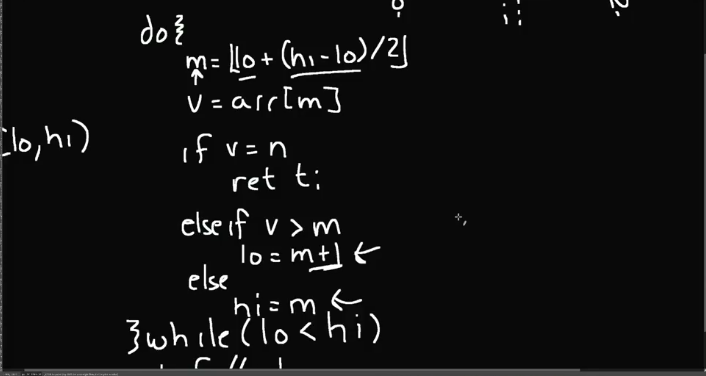 do {
m = ⌊lo + (hi - lo) / 2⌋
v = arr[m]
[lo, hi)
if v = n
ret t;
else if v > m
lo = m+1 ←
else
hi = m ←
} while (lo < hi)